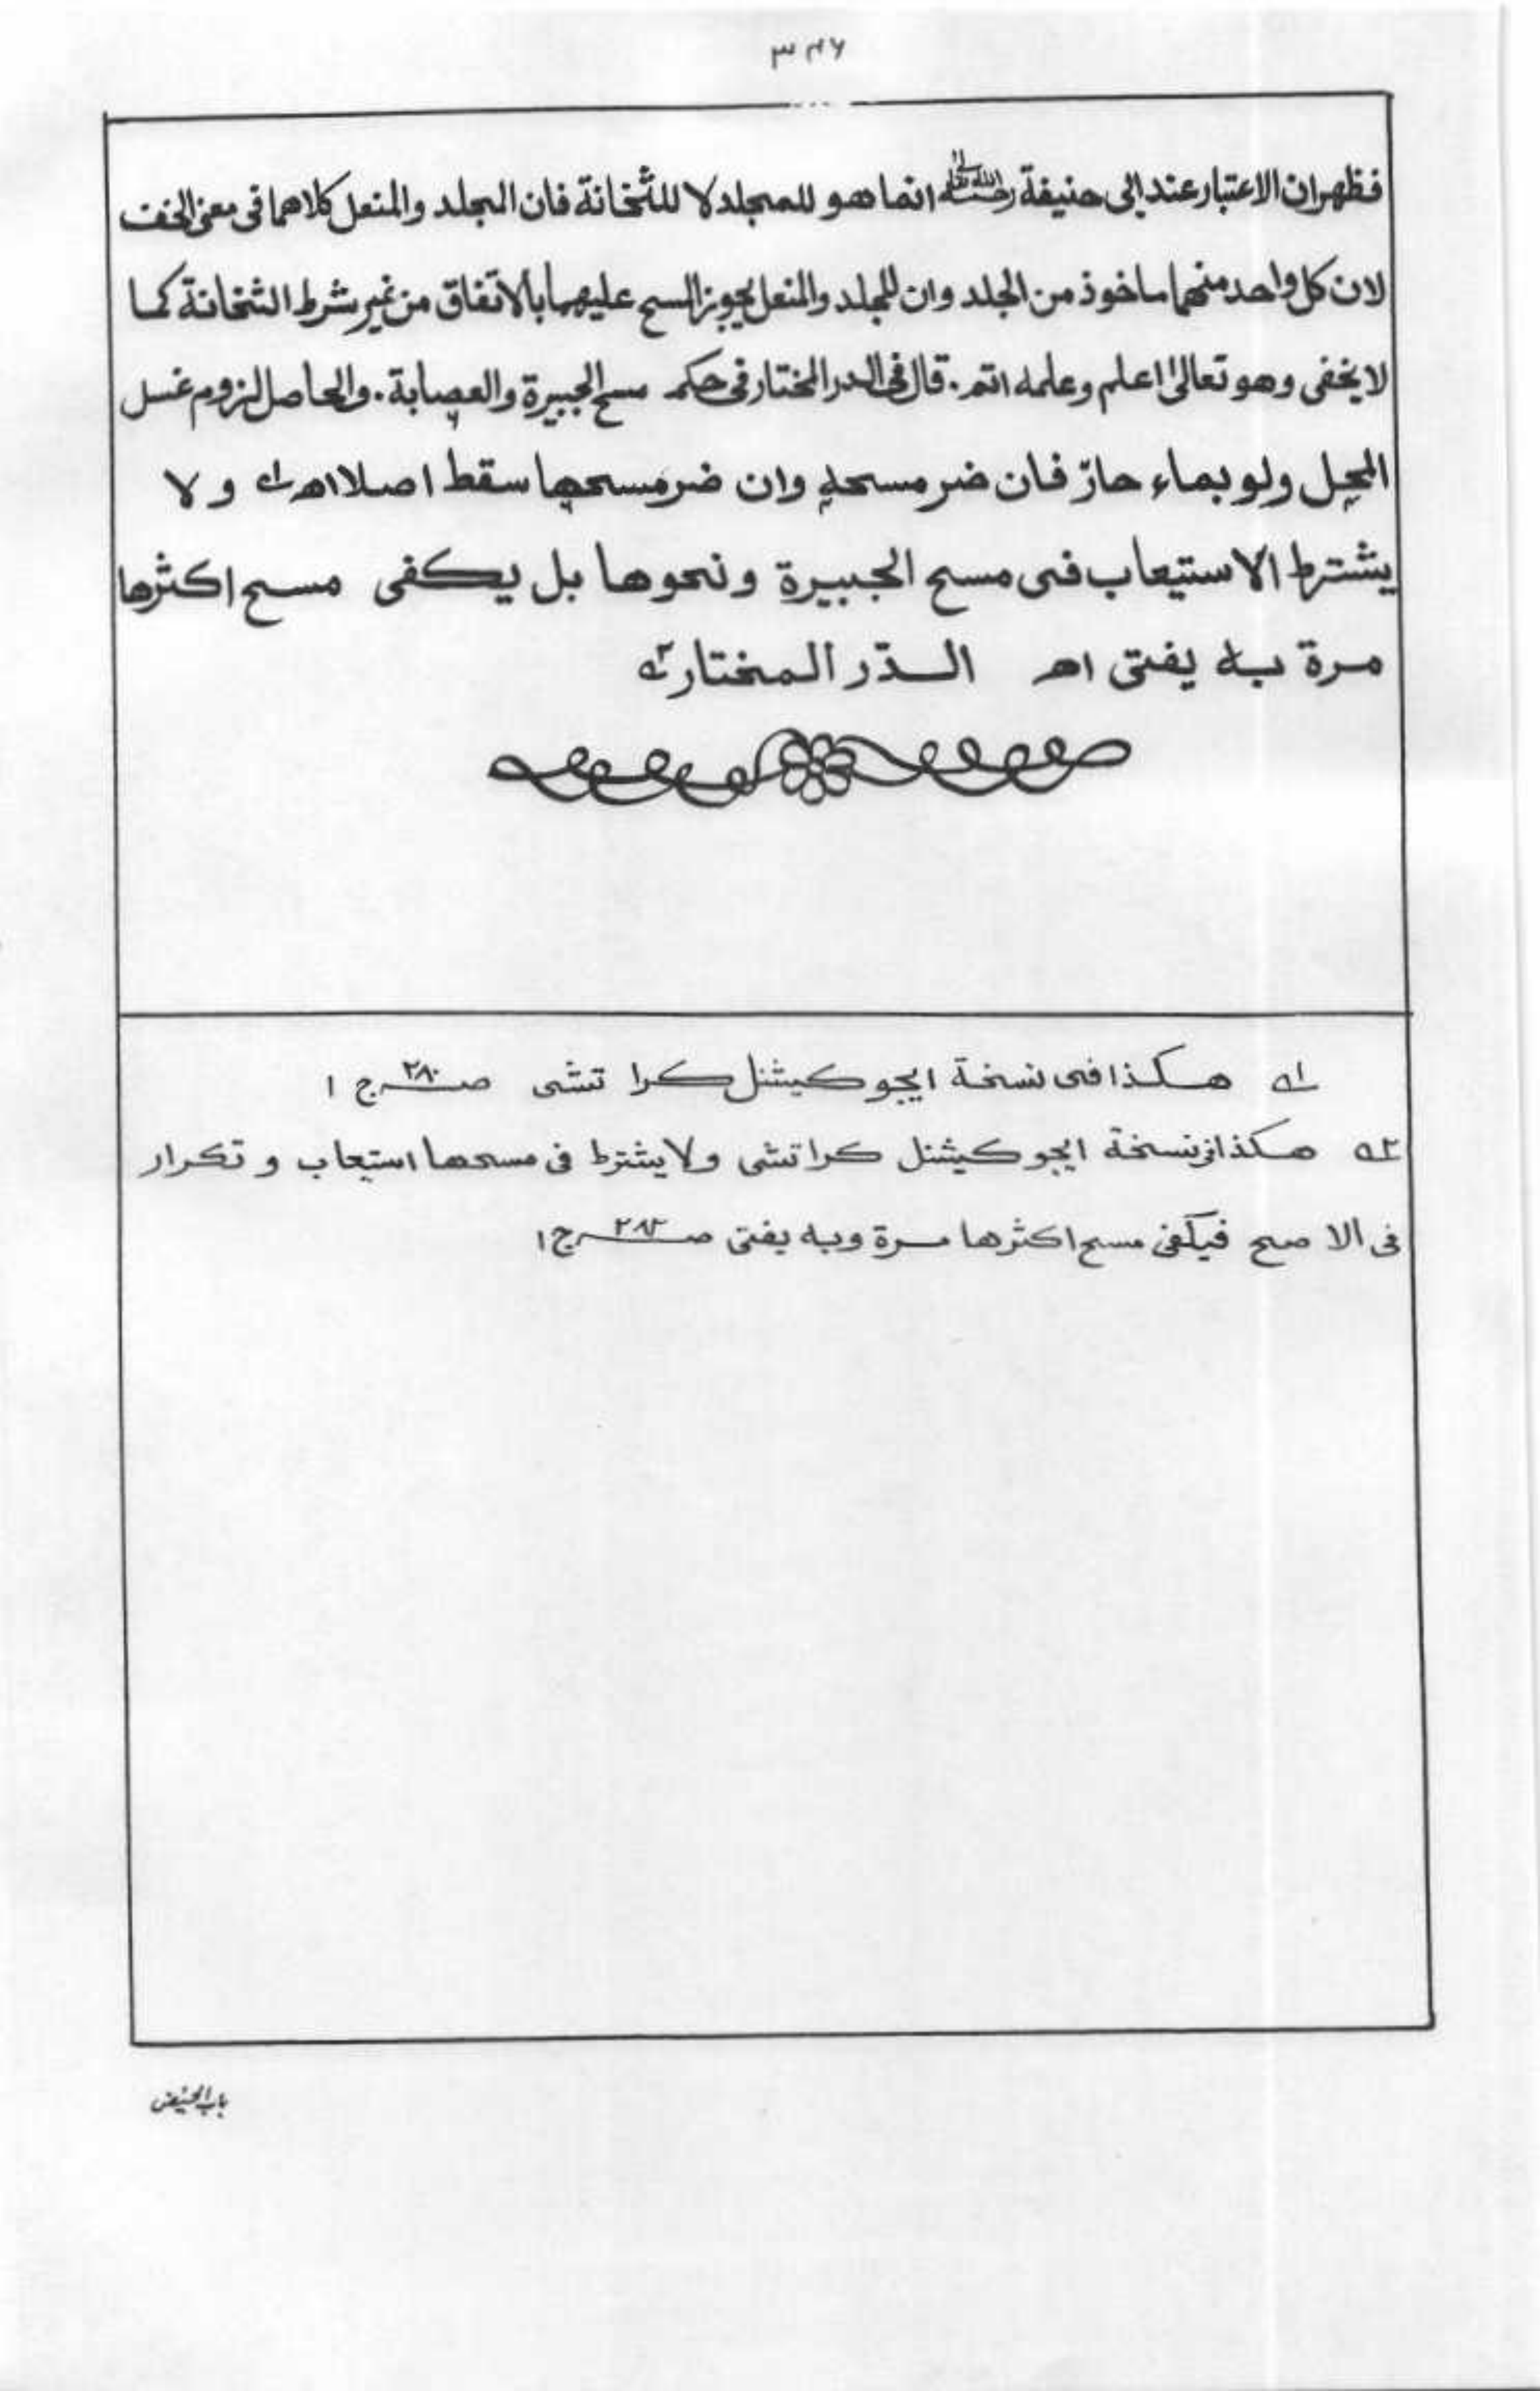 ٣٤٦
فظهران الاعتبار عند ابی حنیفة رحمه الله تعالیٰ انما هو للمجلد لا للثخانة فان المجلد والمنعل کلاهما فی معنی الخف
لان کل واحد منهما ماخوذ من الجلد وان المجلد والمنعل یجوز المسح علیهما بالاتفاق من غیر شرط الثخانة کما
لا یخفی وهو تعالیٰ اعلم وعلمه اتم۔ قال فی الدر المختار فی حکم مسح الجبیرة والعصابة۔ والحاصل لزوم غسل
المحل ولو بماء حارّ فان ضر مسحه وان ضر مسحها سقط اصلا اه ١ ولا
یشترط الاستیعاب فی مسح الجبیرة ونحوها بل یکفی مسح اکثرها
مرة به یفتی اه الدّر المختار ٢
١ هکذا فی نسخة ایجوکیشنل کراتشی صـ ٢٨٠ ج ١
٢ هکذا فی نسخة ایجوکیشنل کراتشی ولا یشترط فی مسحها استیعاب و تکرار
فی الاصح فیکفی مسح اکثرها مرة وبه یفتی صـ ٢٨٢ ج ١
باب الحیض